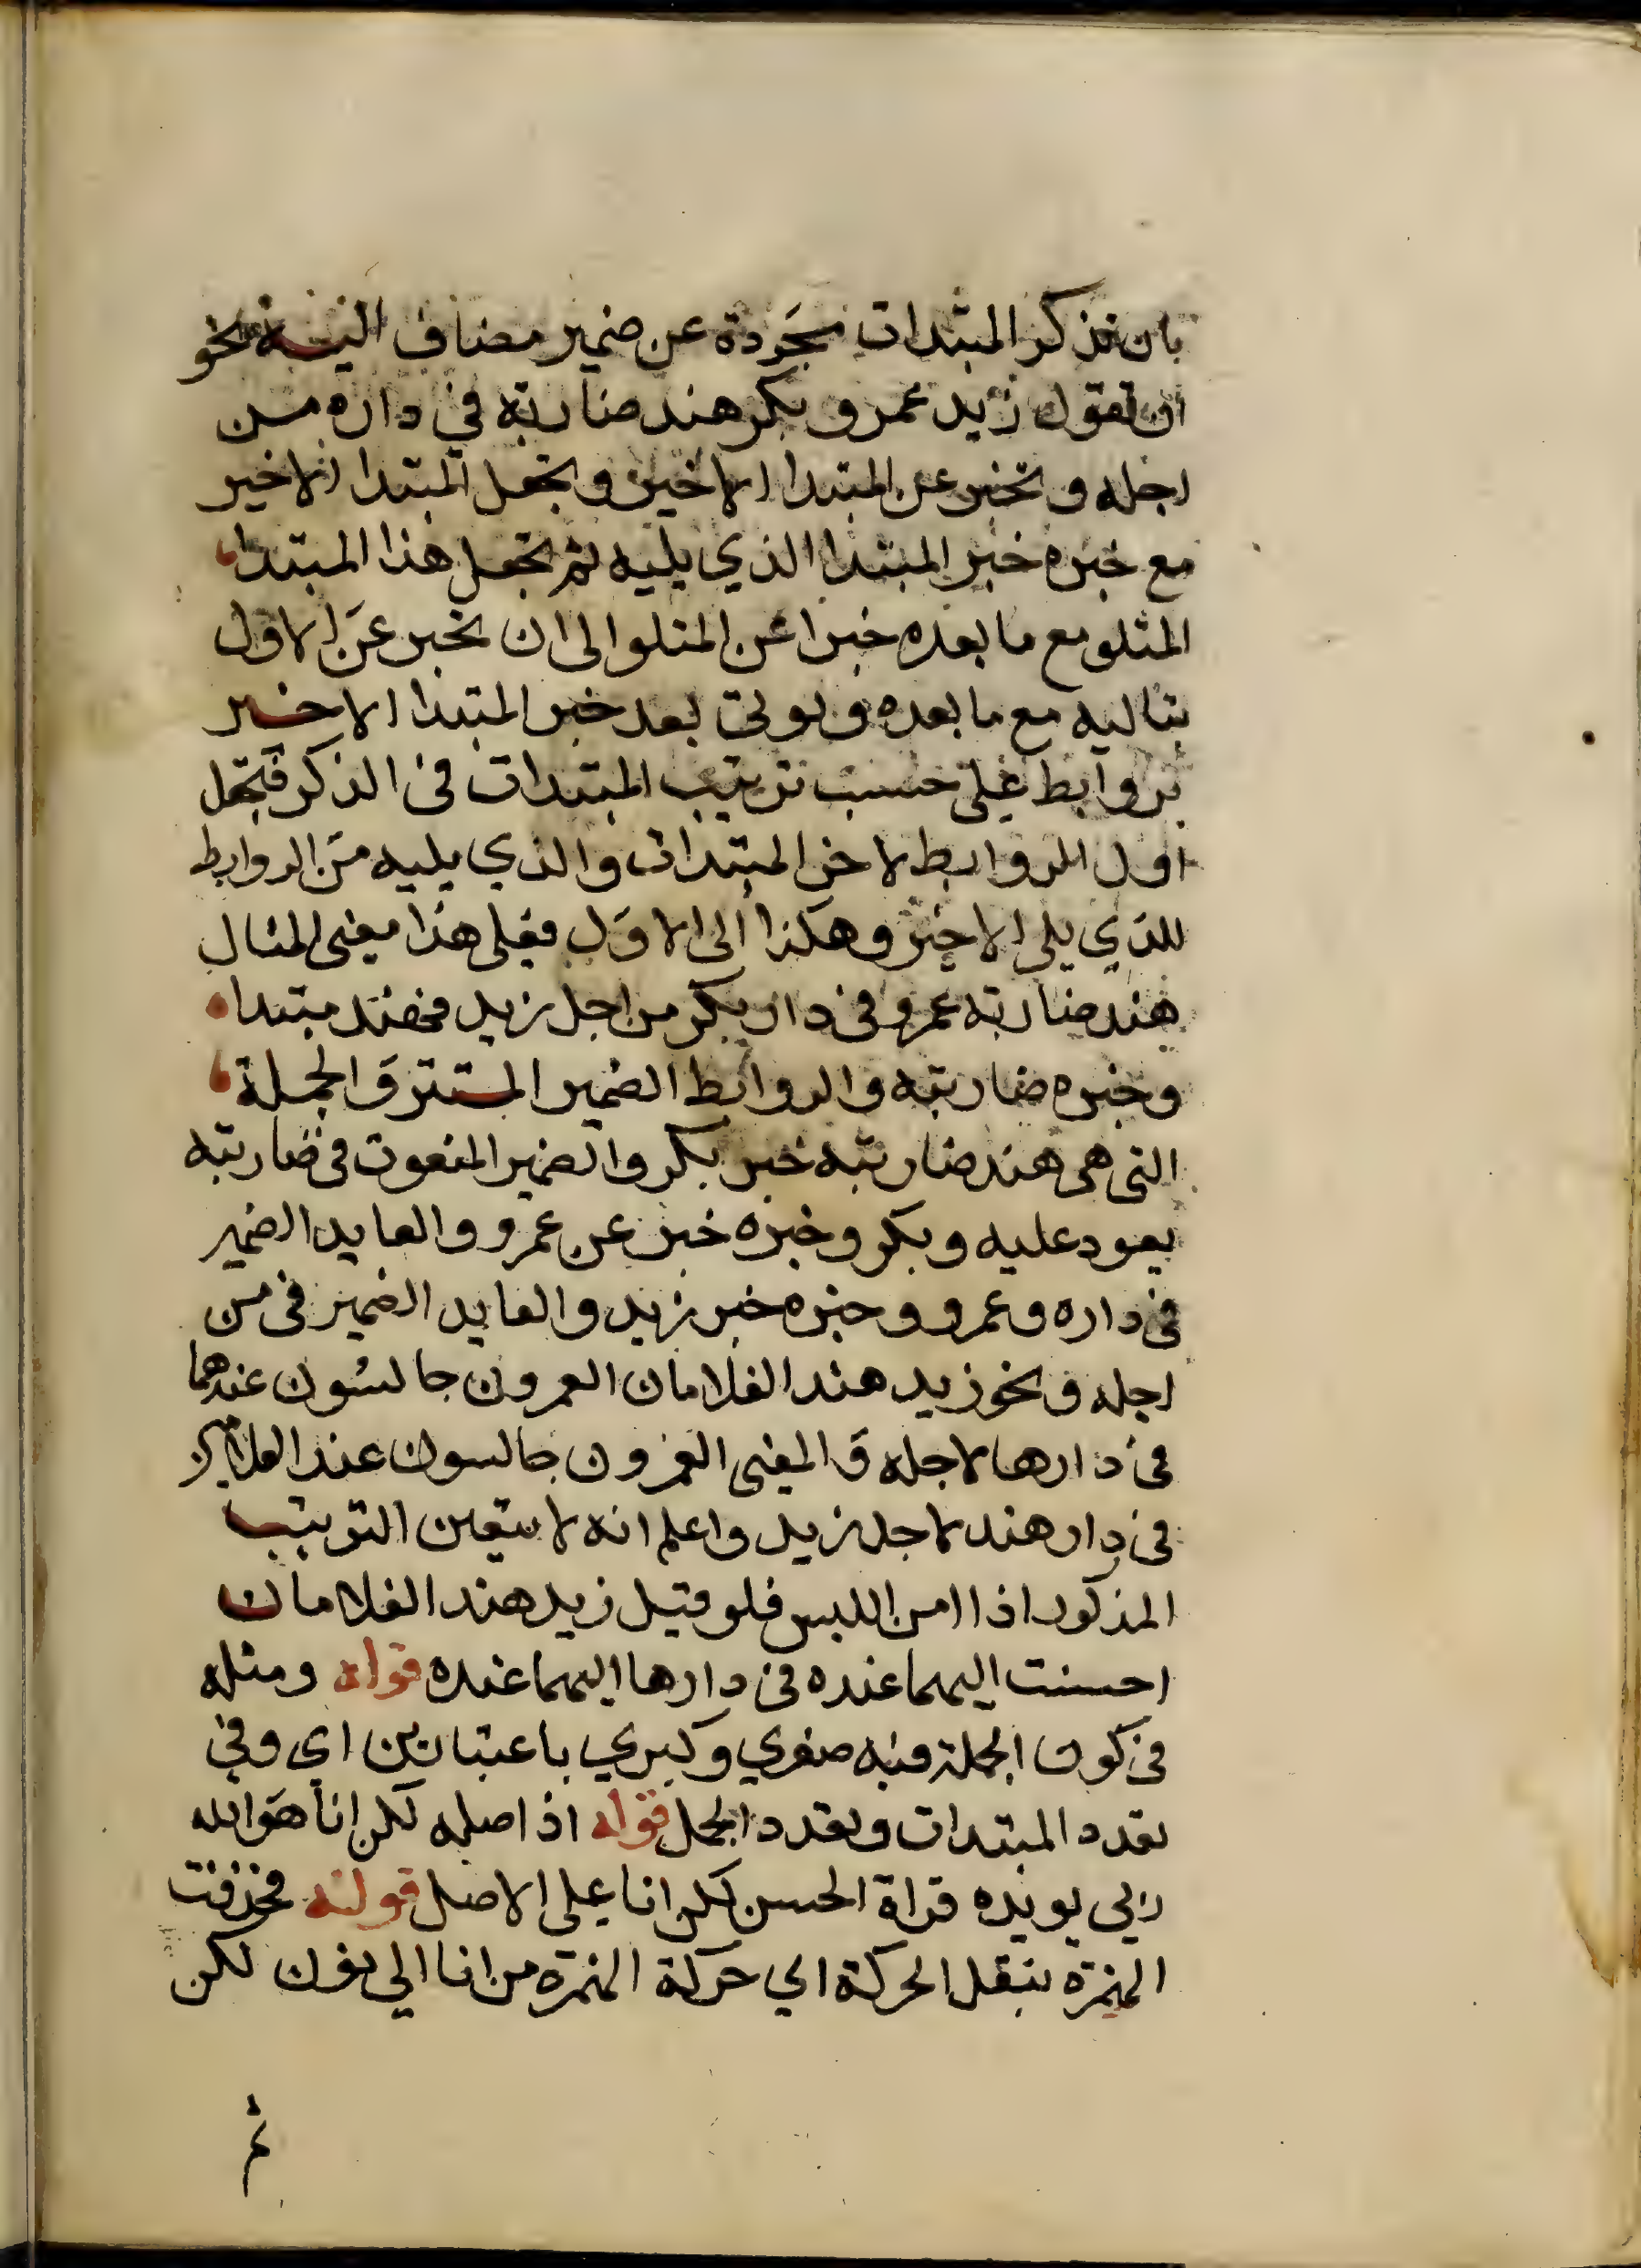 بان تذكر المبتدات مجردة عن ضمير مضاف اليه نحو
ان تقول زيد عمرو بكر هند ضاربته في داره من
اجله و تخبر عن المبتدا الاخير و تجعل المبتدا الاخير
مع خبره خبر المبتدا الذي يليه ثم تجعل هذا المبتدا
المتلو مع ما بعده خبرا عن المتلو الى ان تخبر عن الاول
بتاليه مع ما بعده و يوتى بعد خبر المبتدا الاخير
بروابط على حسب ترتيب المبتدات في الذكر فتجعل
اول الروابط لاخر المبتدات والذي يليه من الروابط
للذي يلي الاخير وهكذا الى الاول فعلى هذا معنى المثال
هند ضاربته عمرو في دار بكر من اجل زيد فهند مبتدا
وخبره ضاربته والروابط الضمير المستتر والجملة
التي هي هند ضاربته خبر بكر والضمير المنعوت في ضاربته
يعود عليه وبكر وخبره خبر عن عمرو والعايد الضمير
في داره وعمرو وخبره خبر زيد والعايد الضمير في من
اجله ونحو زيد هند الغلامان العمرون جالسون عندهما
في دارها لاجله والمعنى العمرون جالسون عند الغلامين
في دار هند لاجل زيد واعلم انه لا يتعين الترتيب
المذكور اذا امن اللبس فلو قيل زيد هند الغلامان
احسنت اليهما عنده في دارها اليهما عنده قوله ومثله
في كون الجملة فيه صغري وكبري باعتبارين اي وفي
تعدد المبتدات وتعدد الجمل قوله اذ اصله لكن انا هو الله
ربي يويده قراة الحسن لكن انا على الاصل قوله فحذفت
الهمزة بنقل الحركة اي حركة الهمزة من انا الي نون لكن
ثم